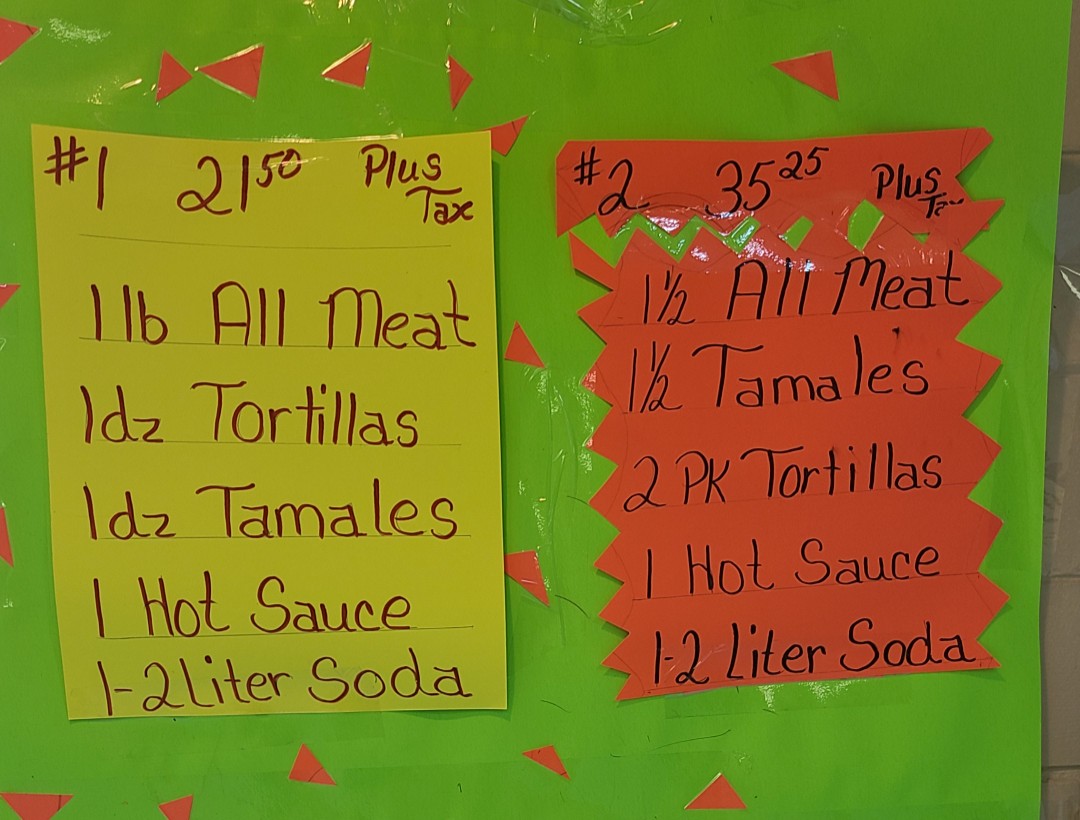 #1 21 50 Plus Tax
1 lb All Meat
1dz Tortillas
1dz Tamales
1 Hot Sauce
1-2 Liter Soda
#2 35 25 Plus Tax
1 1/2 All Meat
1 1/2 Tamales
2 PK Tortillas
1 Hot Sauce
1-2 Liter Soda